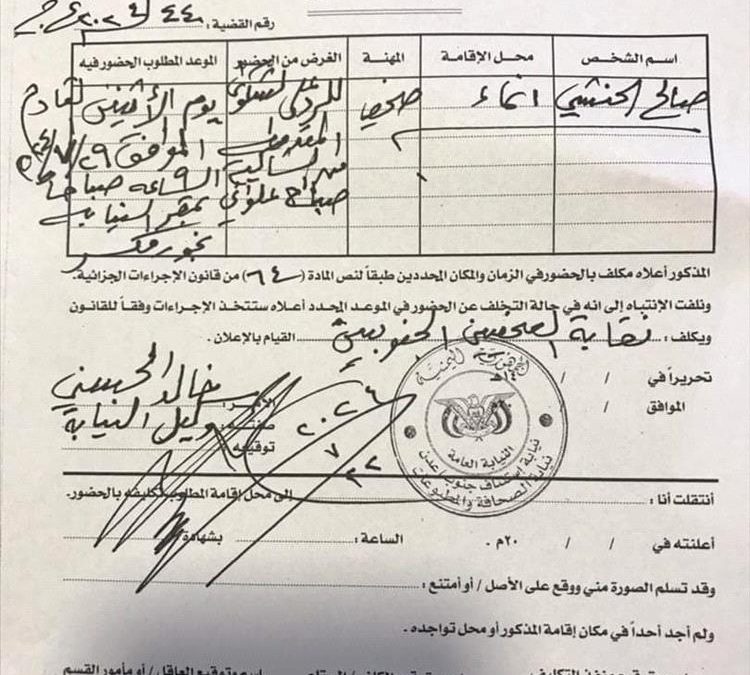 رقم القضية : ٤٤ / ٢٠٢٤ ج.ع
اسم الشخص | محل الإقامة | المهنة | الغرض من الحضور | الموعد المطلوب الحضور فيه
صالح الحنشي | انماء | صحفي | للرد على الشكوى | يوم الأثنين القادم
المقدمة | الموافق ٢٩/٧/
من الشاكية | الساعه ٩ صباحا
صباح علواني | بمقر النيابة
بخورمكسر
المذكور أعلاه مكلف بالحضور في الزمان والمكان المحددين طبقاً لنص المادة (٦٤) من قانون الإجراءات الجزائية.
ونلفت الإنتباه إلى انه في حالة التخلف عن الحضور في الموعد المحدد أعلاه ستتخذ الإجراءات وفقاً للقانون
ويكلف : نقابة الصحفيين الجنوبيين القيام بالإعلان .
تحريراً في / /
الموافق / /
خالد الحسني
وكيل النيابة
توقيعه :
٢٠٢٤
٧
٢٢
الجمهورية اليمنية
النيابة العامة
نيابة إستئناف جنوب عدن
نيابة الصحافة والمطبوعات
أنتقلت أنا : إلى محل إقامة المطلوب تكليفه بالحضور.
أعلنته في / / ٢٠م . الساعة : بشهادة
وقد تسلم الصورة مني ووقع على الأصل / أو أمتنع :
ولم أجد أحداً في مكان إقامة المذكور أو محل تواجده .